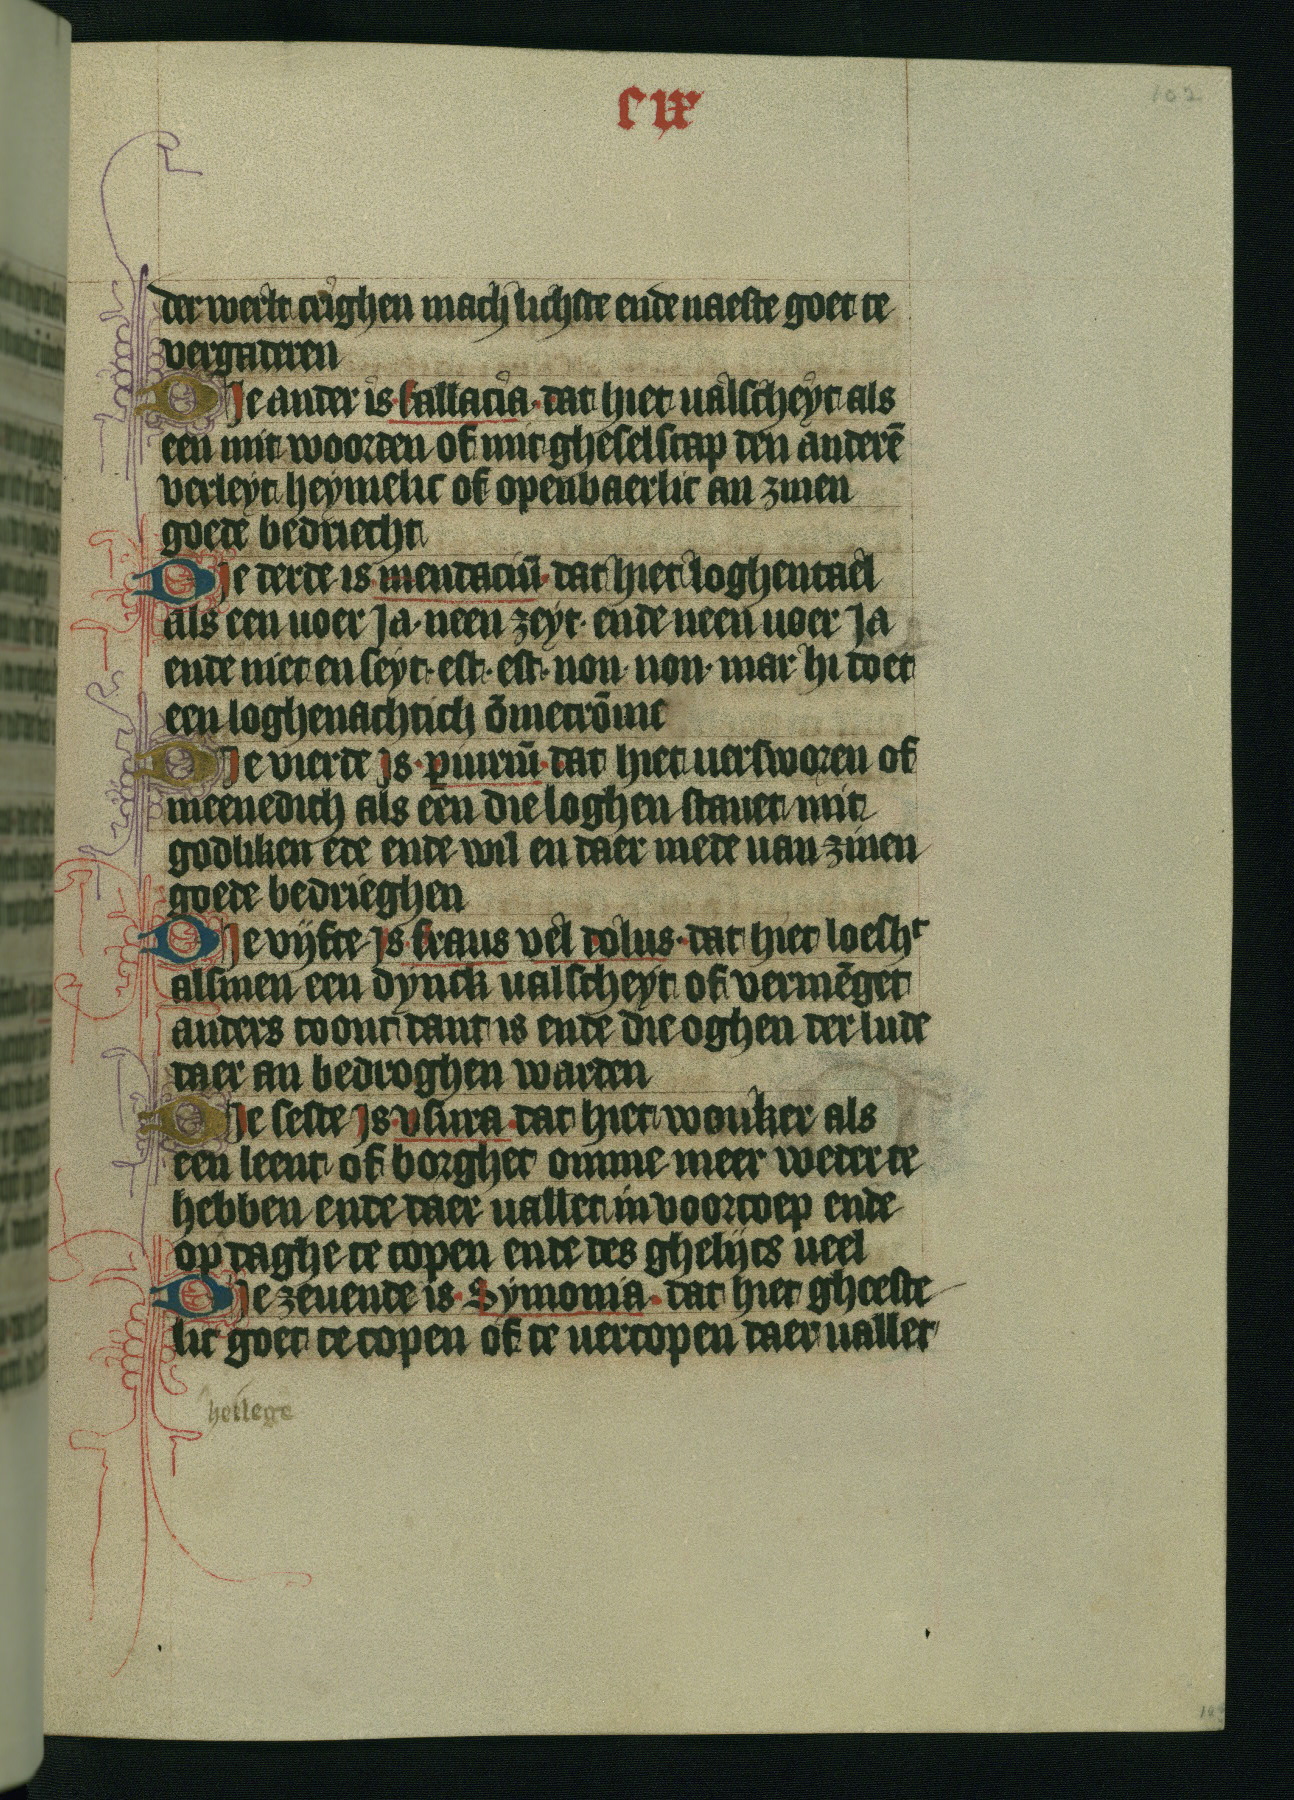 cix
102
der werlt crighen mach lichste ende naeste goet te
vergaderen
DJe ander is fallacia dat hiet valscheyt als
een mit woorden of mit gheselscap den anderē
verleyt heymelic of openbaerlic an zinen
goede bedriecht
DJe derde is mendaciū dat hiet loghentael
als een voer Ja neen zeyt ende neen voer Ja
ende niet en seyt est est non non mar hi doet
een loghenachtich
DJe vierde Js piuriū dat hiet versworen of
meenedich als een die loghen stauet mit
godliken ede ende wil en daer mede van zinen
goede bedrieghen
DJe vijfte Js fraus vel dolus dat hiet loesht
alsmen een dynck valscheyt of vermēget
anders toont dant is ende die oghen der lude
daer an bedroghen warden
DJe seste Js vsura dat hiet wouker als
een leent of borghet omme meer weder te
hebben ende daer vallet in voorcoep ende
op daghe te copen ende des ghelijcs veel
DJe zeuende is Symonia dat hiet gheeste
lic goet te copen of te vercopen daer vallet
heilege